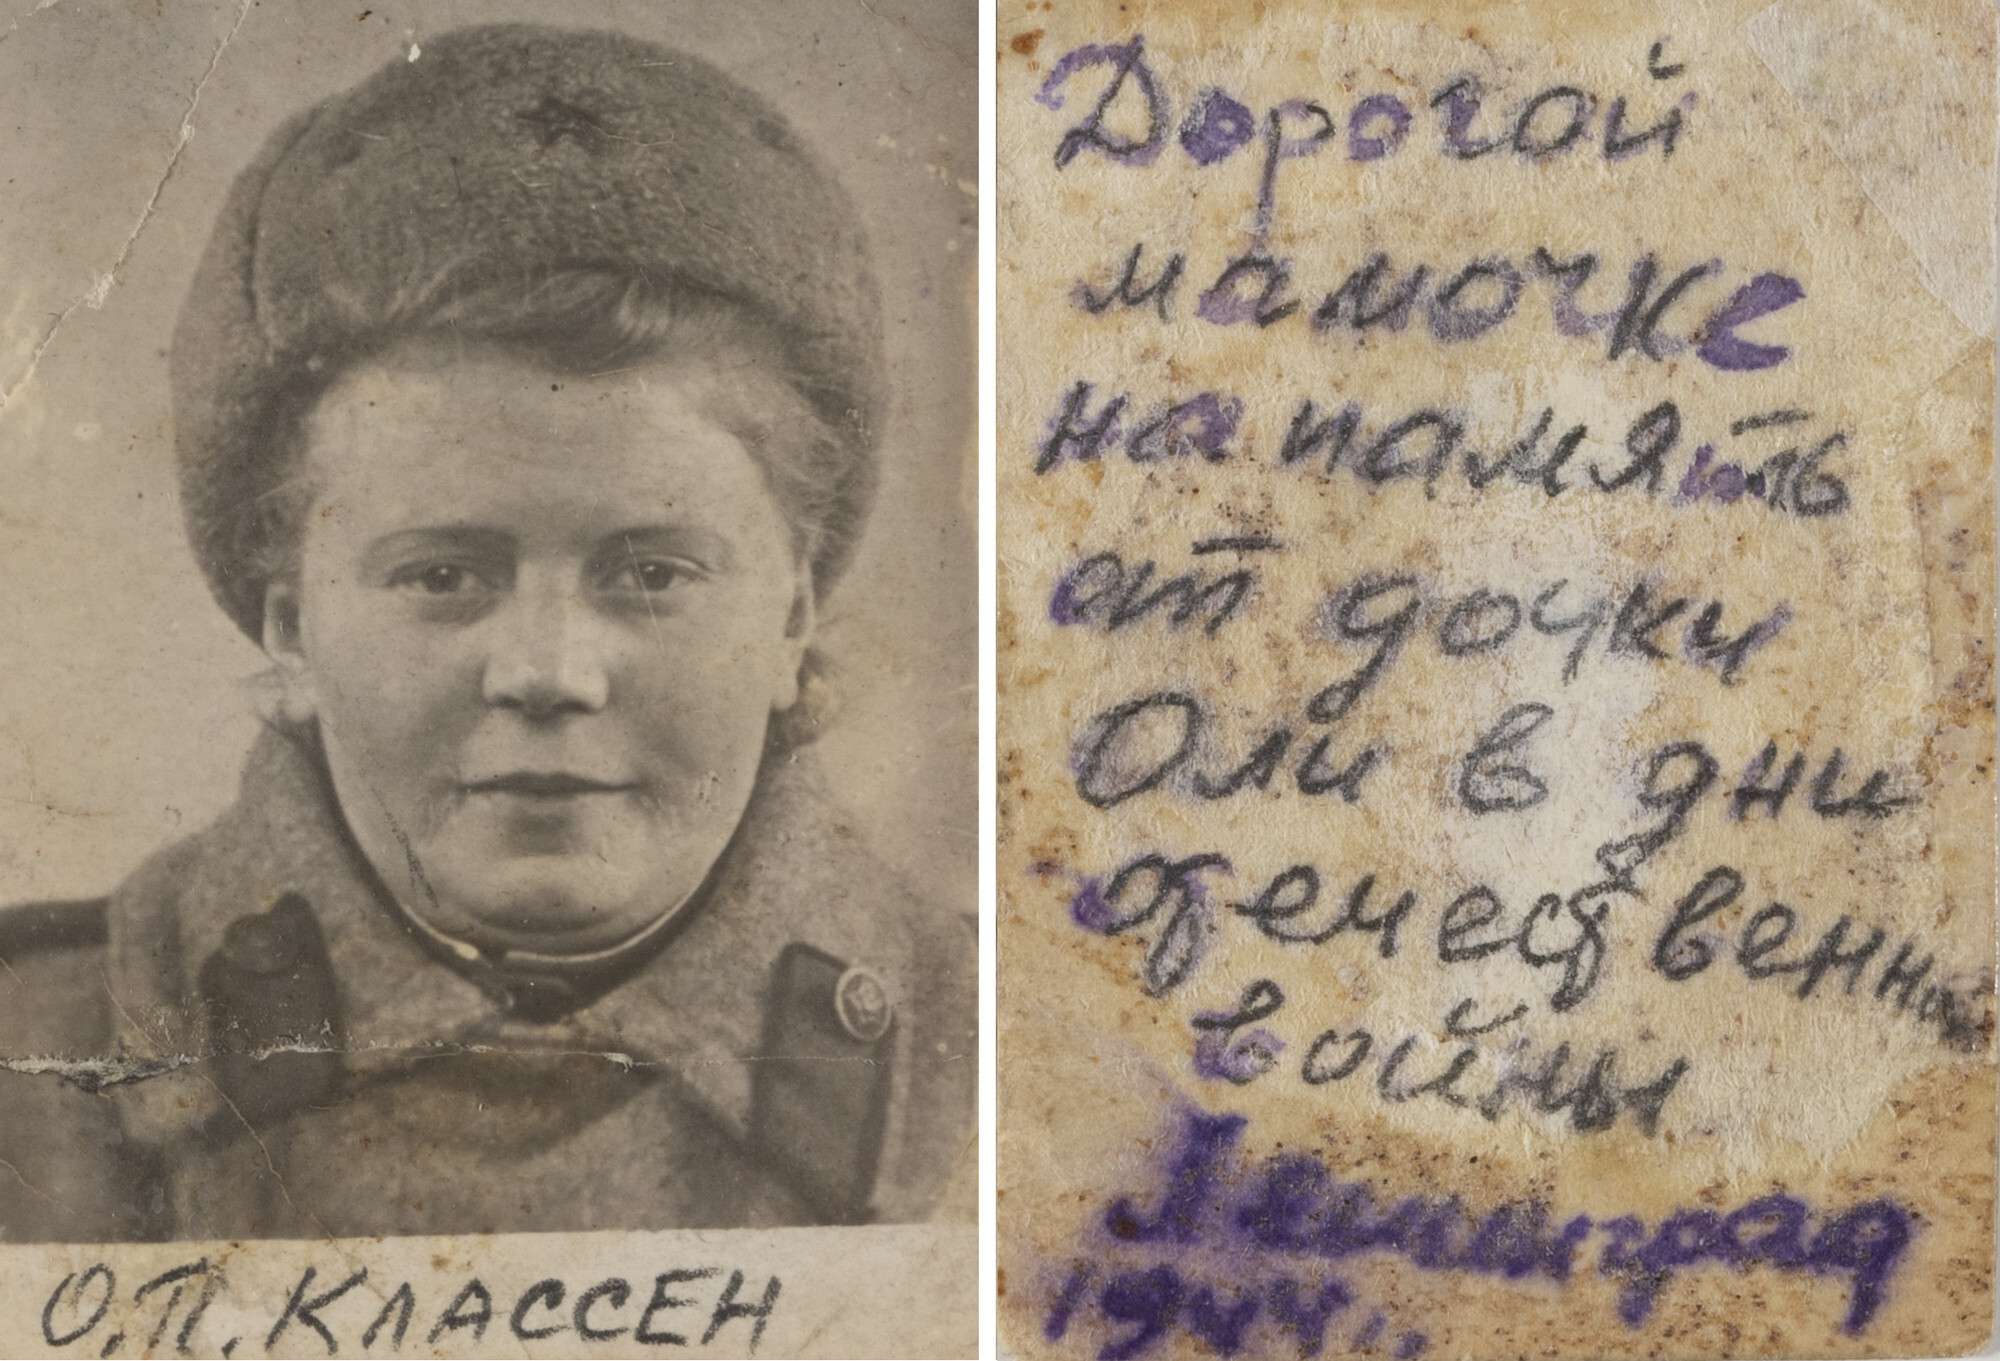 О.П. КЛАССЕН
Дорогой
мамочке
на память
от дочки
Оли в дни
отечественной
войны
Ленинград
1944 г.